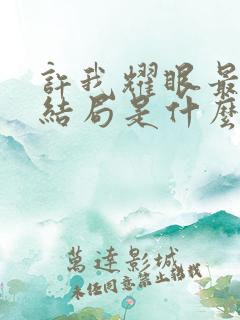 許我耀眼最
結局是什麼
萬達影城
未經同意禁止轉載